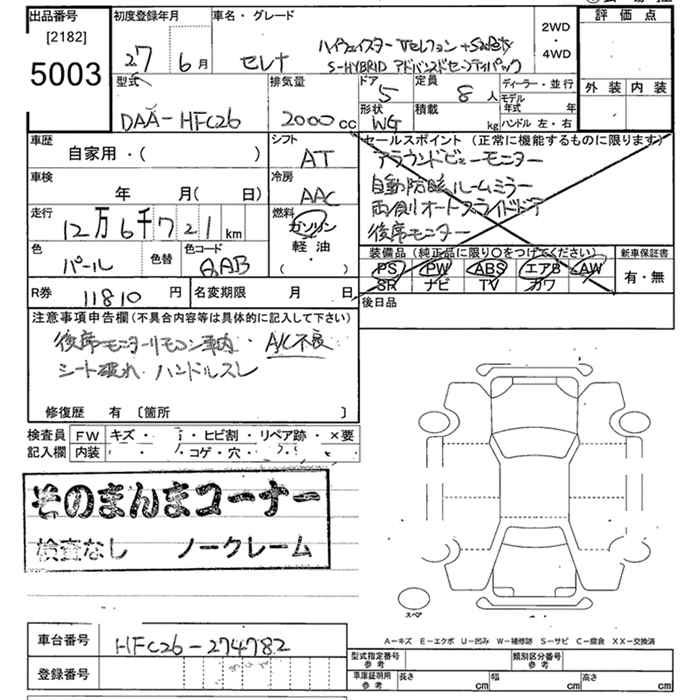 出品番号 初度登録年月 車名・グレード 評価点
[2182] 2WD
5003 27 6月 セレナ ハイウェイスター Vセレクション +Safety ・
S-HYBRID アドバンスドセーフティパック 4WD
型式 排気量 ドア 定員 ディーラー・並行 外装 内装
5 8人 モデル年式 年
DAA-HFC26 2000cc 形状 積載 ハンドル 左・右
WG kg
車歴 シフト セールスポイント (正常に機能するものに限ります)
自家用・( ) AT アラウンドビューモニター
車検 冷房 自動防眩ルームミラー
年 月( 日) AAC 両側オートスライドドア
走行 燃料 後席モニター
12万6千721km ガソリン
色 色替 色コード 軽油 装備品 (純正品に限り〇をつけてください) 新車保証書
パール QAB ( ・ ) PS PW ABS エアB AW 有・無
SR ナビ TV カワ
R券 11810円 名変期限 月 日 後日品
注意事項申告欄(不具合内容等は具体的に記入して下さい)
後席モニターリモコン車内・A/C不良
シート破れ ハンドルスレ
修復歴 有 〔箇所 〕
検査員 FW キズ・ ヒビ割・リペア跡・×要
記入欄 内装 コゲ・穴・
そのまんまコーナー
検査なし ノークレーム
スペア
A-キズ E-エクボ U-凹み W-補修跡 S-サビ C-腐食 XX-交換済
車台番号 HFC26-274782 型式指定番号 参考 類別区分番号 参考
登録番号 車庫証明用 参考 長さ cm 幅 cm 高さ cm